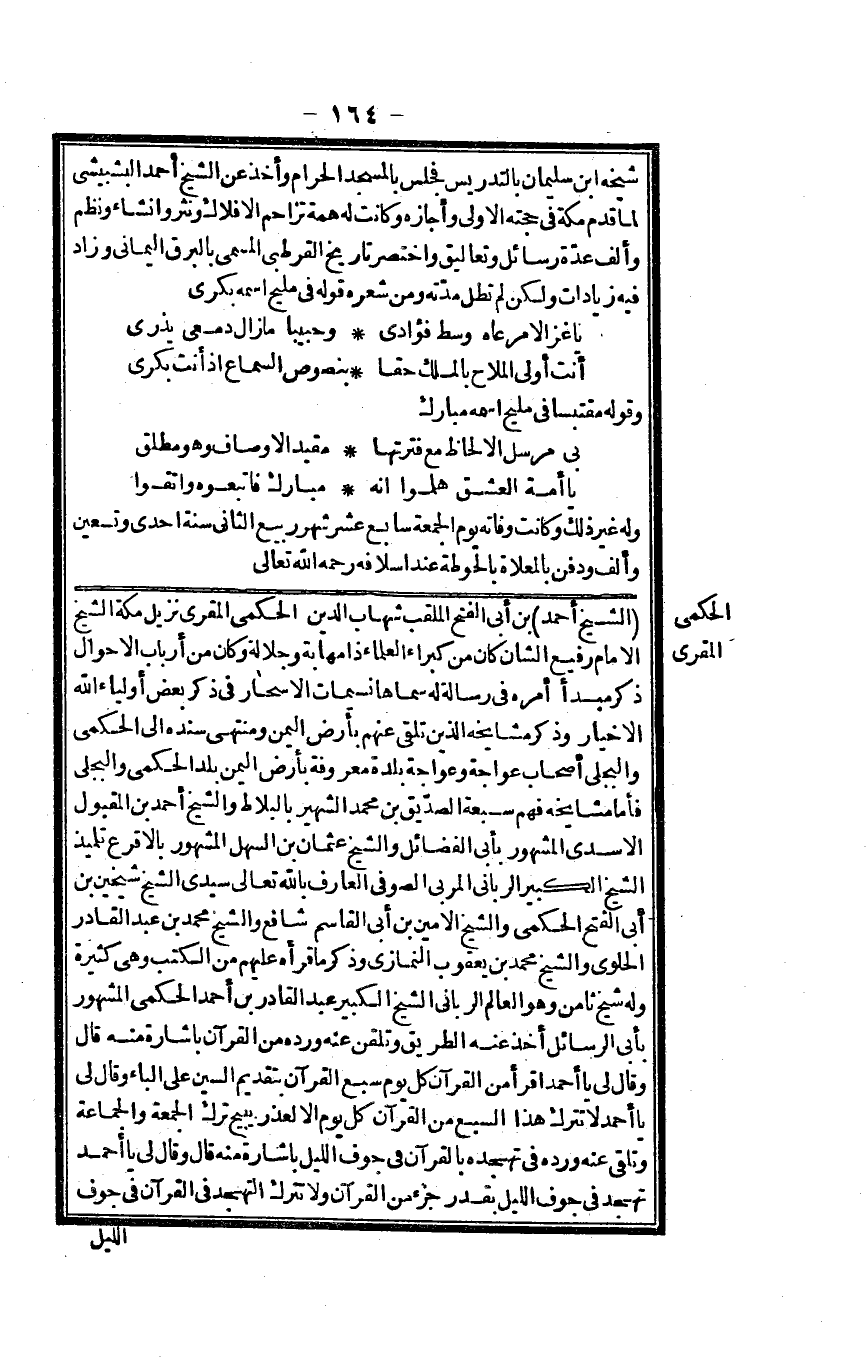 - ١٦٤ -
شيخه ابن سليمان بالتدريس فجلس بالمسجد الحرام وأخذ عن الشيخ أحمد البشبيشى
لما قدم مكة فى حجته الاولى وأجازه وكانت له همة تزاحم الافلاك ونثر وانشاء ونظم
وألف عدّة رسائل وتعاليق واختصر تاريخ القرطبى المسمى بالبرق اليمانى وزاد
فيه زيادات ولكن لم تطل مدّته ومن شعره قوله فى مليح اسمه بكرى
ياغز الامر عاه وسط فؤادى * وحبيبا مازال دمعى يذرى
أنت أولى الملاح بالملك حقا * بنصوص السماع اذ أنت بكرى
وقوله مقتبسا فى مليح اسمه مبارك
بى مرسل الالحاظ مع فترتها * مقيد الاوصاف وهو مطلق
ياأمة العشق هلموا انه * مبارك فاتبعوه واتقوا
وله غير ذلك وكانت وفاته يوم الجمعة سابع عشر شهر ربيع الثانى سنة احدى وتسعين
وألف ودفن بالمعلاة بالحوطة عند اسلافه رحمه الله تعالى
الحكمى
المقرى
(الشيخ أحمد) بن أبى الفتح الملقب شهاب الدين الحكمى المقرى نزيل مكة الشيخ
الامام رفيع الشان كان من كبراء العلماء ذا مهابة وجلالة وكان من أرباب الاحوال
ذكر مبدأ أمره فى رسالة له سماها نسمات الاسحار فى ذكر بعض أولياء الله
الاخيار وذكر مشايخه الذين تلقى عنهم بأرض اليمن ومنتهى سنده الى الحكمى
والبجلى أصحاب عواجة وعواجة بلدة معروفة بأرض اليمن بلد الحكمى والبجلى
فأما مشايخه فهم سبعة الصدّيق بن محمد الشهير بالبلاط والشيخ أحمد بن المقبول
الاسدى المشهور بأبى الفضائل والشيخ عثمان بن السهل المشهور بالاقرع تلميذ
الشيخ الكبير الربانى المربى الصوفى العارف بالله تعالى سيدى الشيخ شيخين بن
أبى الفتح الحكمى والشيخ الامين بن أبى القاسم شافع والشيخ محمد بن عبد القادر
الحلوى والشيخ محمد بن يعقوب النمازى وذكر ما قرأه عليهم من الكتب وهى كثيرة
وله شيخ ثامن وهو العالم الربانى الشيخ الكبير عبد القادر بن أحمد الحكمى المشهور
بأبى الرسائل أخذ عنه الطريق وتلقن عنه ورده من القرآن باشارة منه قال
وقال لى ياأحمد اقرأ من القرآن كل يوم سبع القرآن بتقديم السين على الباء وقال لى
ياأحمد لا تترك هذا السبع من القرآن كل يوم الا لعذر يبيح ترك الجمعة والجماعة
وتلقى عنه ورده فى تهجده بالقرآن فى جوف الليل باشارة منه قال وقال لى ياأحمد
تهجد فى جوف الليل بقدر جزء من القرآن ولا تترك التهجد فى القرآن فى جوف
الليل